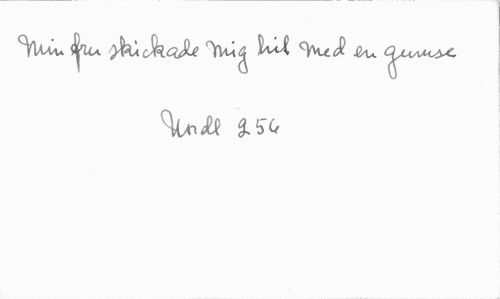 Min fru skickade mig hit med en gumse
Nordl 256